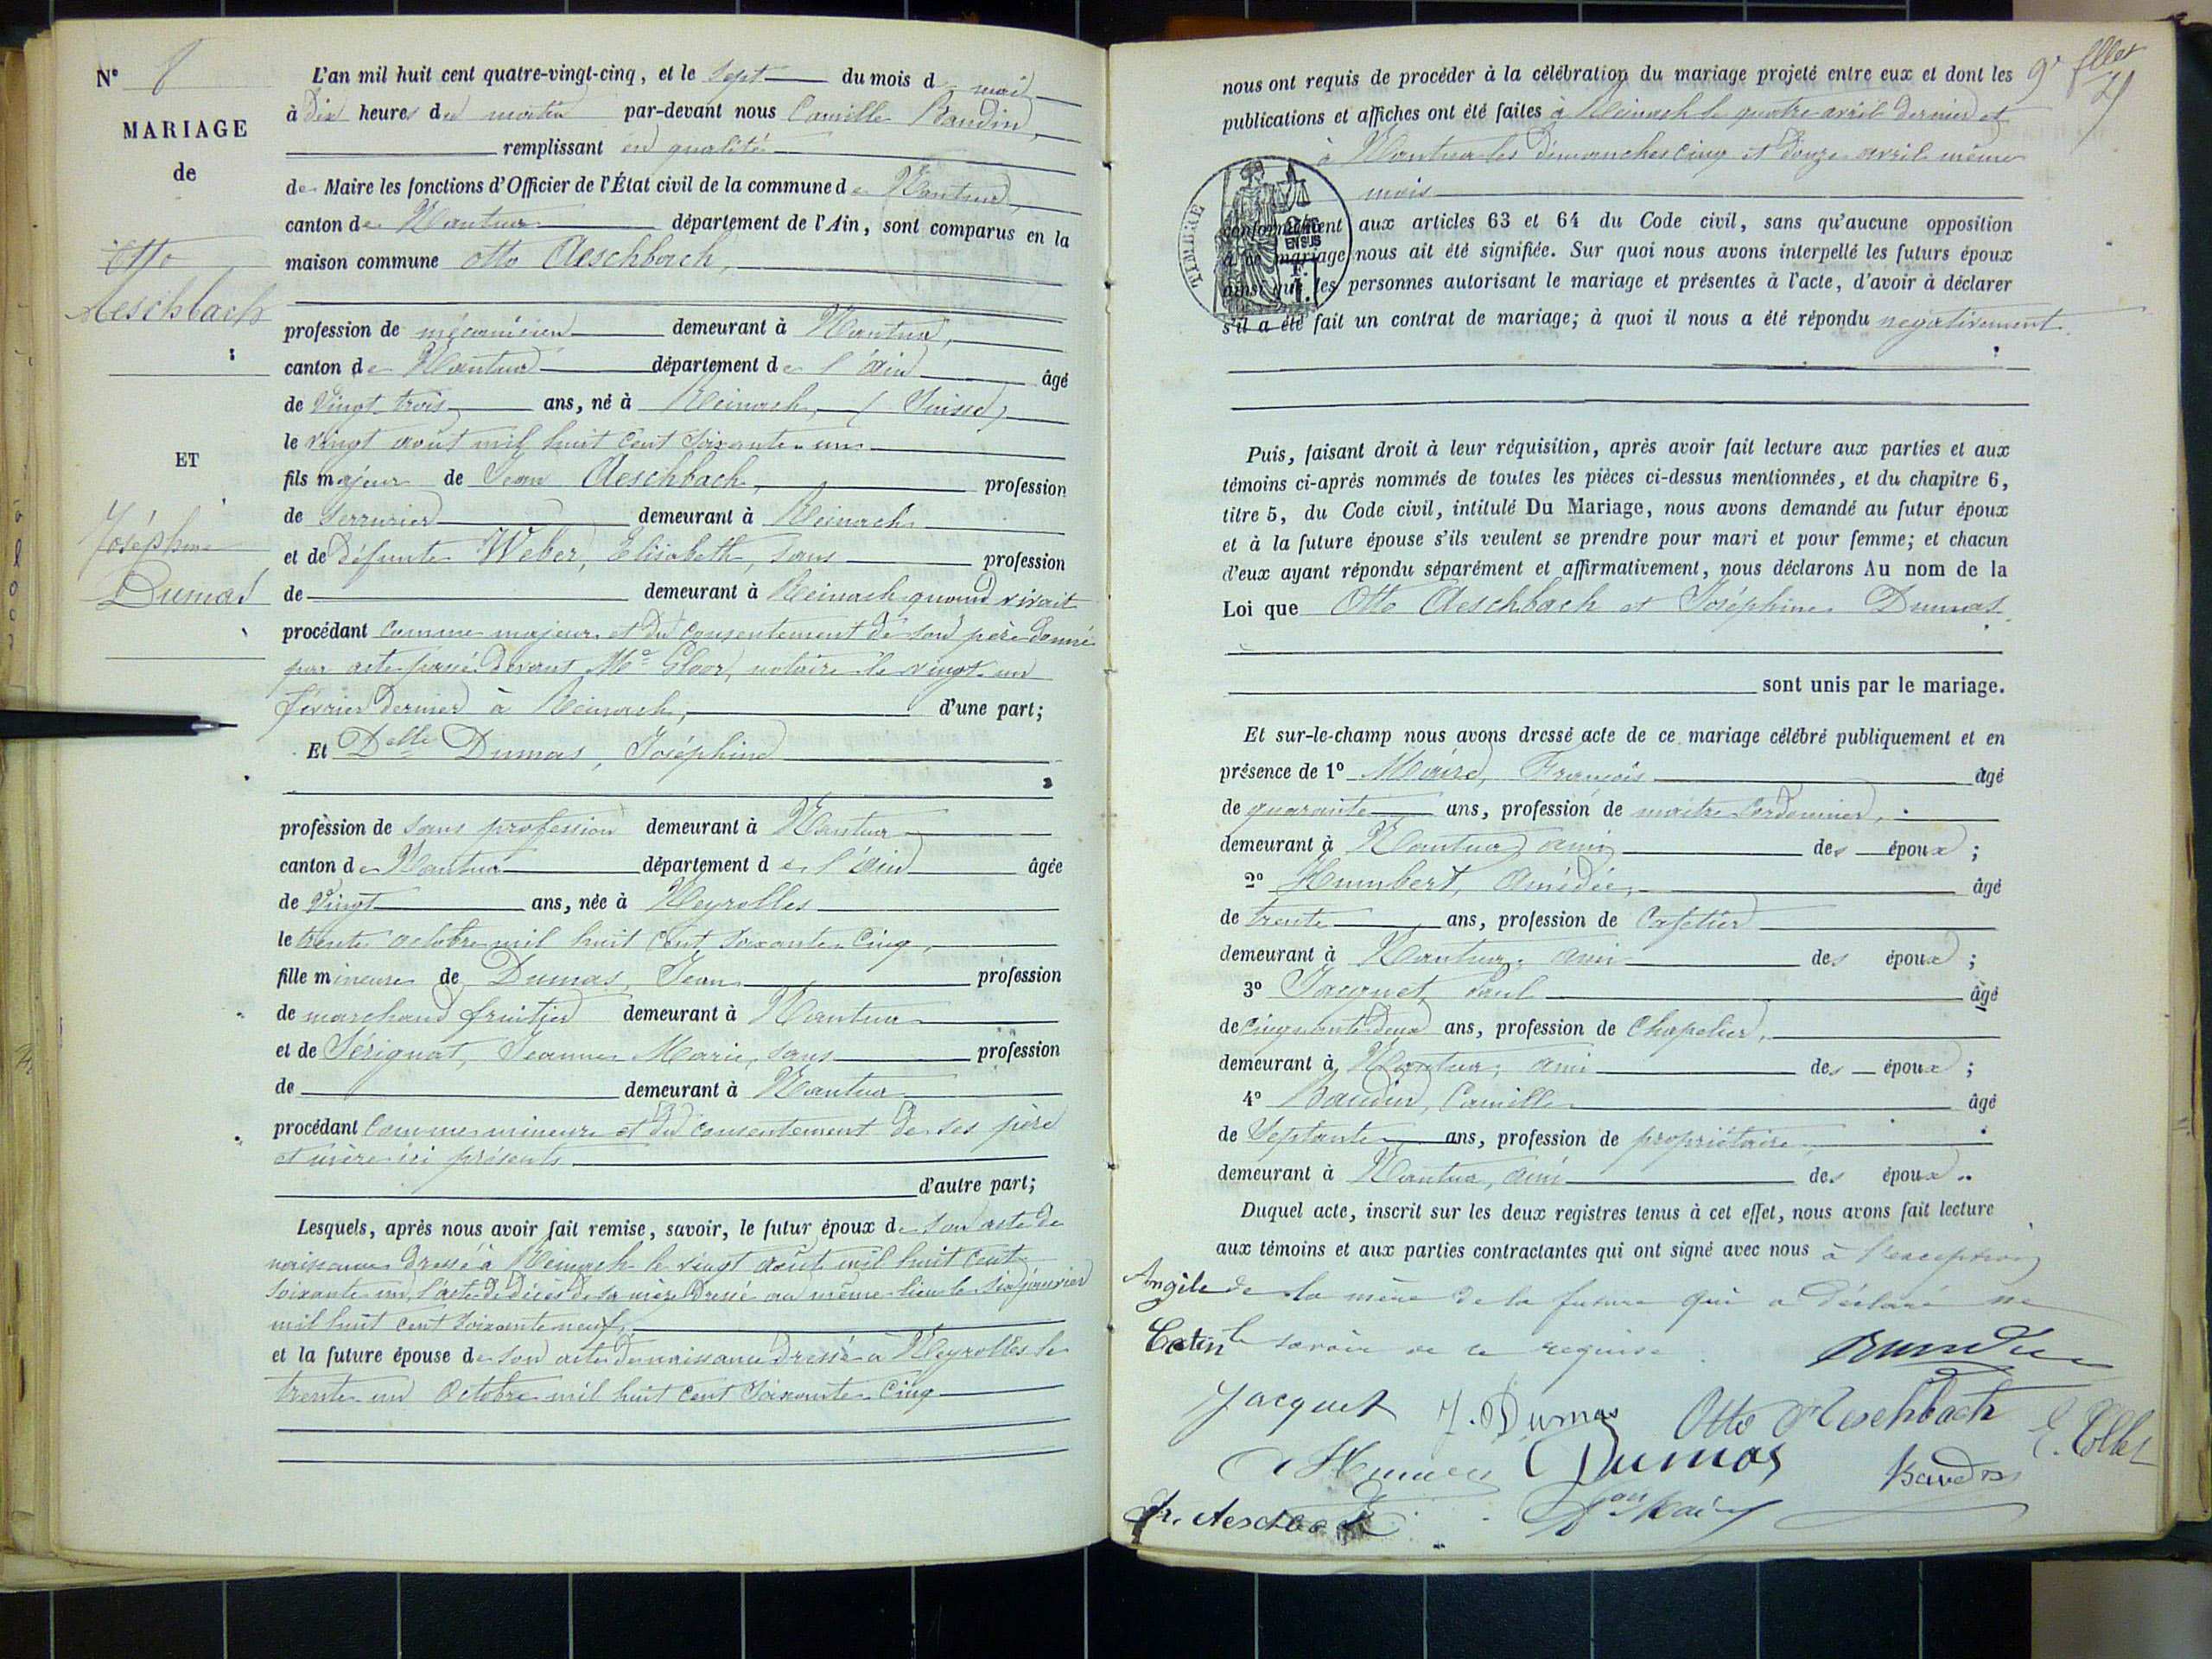 N° 8
MARIAGE
de
Otto
Aeschbach
ET
Joséphine
Dumas
L'an mil huit cent quatre-vingt-cinq, et le sept du mois de mai
à dix heures du matin par-devant nous Camille Baudin,
remplissant en qualité
de Maire les fonctions d'Officier de l'État civil de la commune de Nantua,
canton de Nantua département de l'Ain, sont comparus en la
maison commune otto Aeschbach,
profession de mécanicien demeurant à Nantua,
canton de Nantua département de l'ain âgé
de Vingt trois ans, né à Reinach, (Suisse)
le vingt août mil huit cent soixante-un
fils majeur de Jean Aeschbach, profession
de serrurier demeurant à Reinach
et de défunte Weber, Elisabeth, sans profession
de demeurant à Reinach quand vivait
procédant comme majeur et du consentement de son père donné
par acte passé devant Me Gloor, notaire le vingt-un
février dernier à Reinach, d'une part;
Et Delle Dumas, Joséphine
profession de sans profession demeurant à Nantua
canton de Nantua département de l'ain âgée
de Vingt ans, née à Neyrolles
le trente octobre mil huit cent soixante-cinq,
fille mineure de Dumas, Jean profession
de marchand fruitier demeurant à Nantua
et de Sérignat, Jeanne Marie, sans profession
de demeurant à Nantua
procédant comme mineure et du consentement de ses père
et mère ici présents
d'autre part;
Lesquels, après nous avoir fait remise, savoir, le futur époux de son acte de
naissance dressé à Reinach le vingt août mil huit cent
soixante un, l'acte de décès de sa mère dressé au même lieu le six janvier
mil huit cent soixante neuf,
et la future épouse de son acte de naissance dressé à Neyrolles le
trente un octobre mil huit cent soixante-cinq
9e fllet
nous ont requis de procéder à la célébration du mariage projeté entre eux et dont les
publications et affiches ont été faites à Reinach le quatre avril dernier et
à Nantua les dimanches cinq et douze avril même
mois
TIMBRE
2/10
EN SUS
conformément aux articles 63 et 64 du Code civil, sans qu'aucune opposition
à ce mariage nous ait été signifiée. Sur quoi nous avons interpellé les futurs époux
ainsi que les personnes autorisant le mariage et présentes à l'acte, d'avoir à déclarer
s'il a été fait un contrat de mariage; à quoi il nous a été répondu négativement.
Puis, faisant droit à leur réquisition, après avoir fait lecture aux parties et aux
témoins ci-après nommés de toutes les pièces ci-dessus mentionnées, et du chapitre 6,
titre 5, du Code civil, intitulé Du Mariage, nous avons demandé au futur époux
et à la future épouse s'ils veulent se prendre pour mari et pour femme; et chacun
d'eux ayant répondu séparément et affirmativement, nous déclarons Au nom de la
Loi que Otto Aeschbach et Joséphine Dumas
sont unis par le mariage.
Et sur-le-champ nous avons dressé acte de ce mariage célébré publiquement et en
présence de 1° Maire, François âgé
de quarante ans, profession de maitre cordonnier,
demeurant à Nantua, ami des époux;
2° Humbert, Amédée, âgé
de trente ans, profession de Cafetier
demeurant à Nantua, ami des époux;
3° Jacquet, Paul âgé
de cinquante deux ans, profession de Chapelier,
demeurant à Nantua, ami des époux;
4° Baudin, Camille âgé
de Septante ans, profession de propriétaire,
demeurant à Nantua, ami des époux.
Duquel acte, inscrit sur les deux registres tenus à cet effet, nous avons fait lecture
aux témoins et aux parties contractantes qui ont signé avec nous à l'exception
Angèle de la mère de la future qui a déclaré ne
le savoir de ce requise.
Jacquet J. Dumas Otto Aeschbach
Dumas Baudin